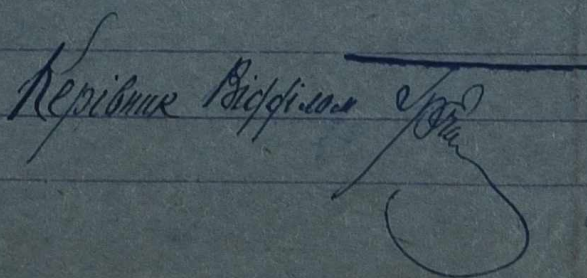 Керівник Відділом